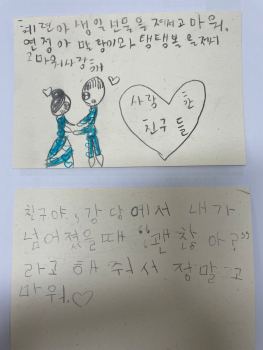 혜련아 생일선물을 줘서 고마워.
연정아 말랑이와 탱탱볼을 줘서
고마워 사랑해
사랑한
친구들
친구야, 강당에서 내가
넘어졌을때 "괜찮아?"
라고 해 줘서 정말 고
마워.♡